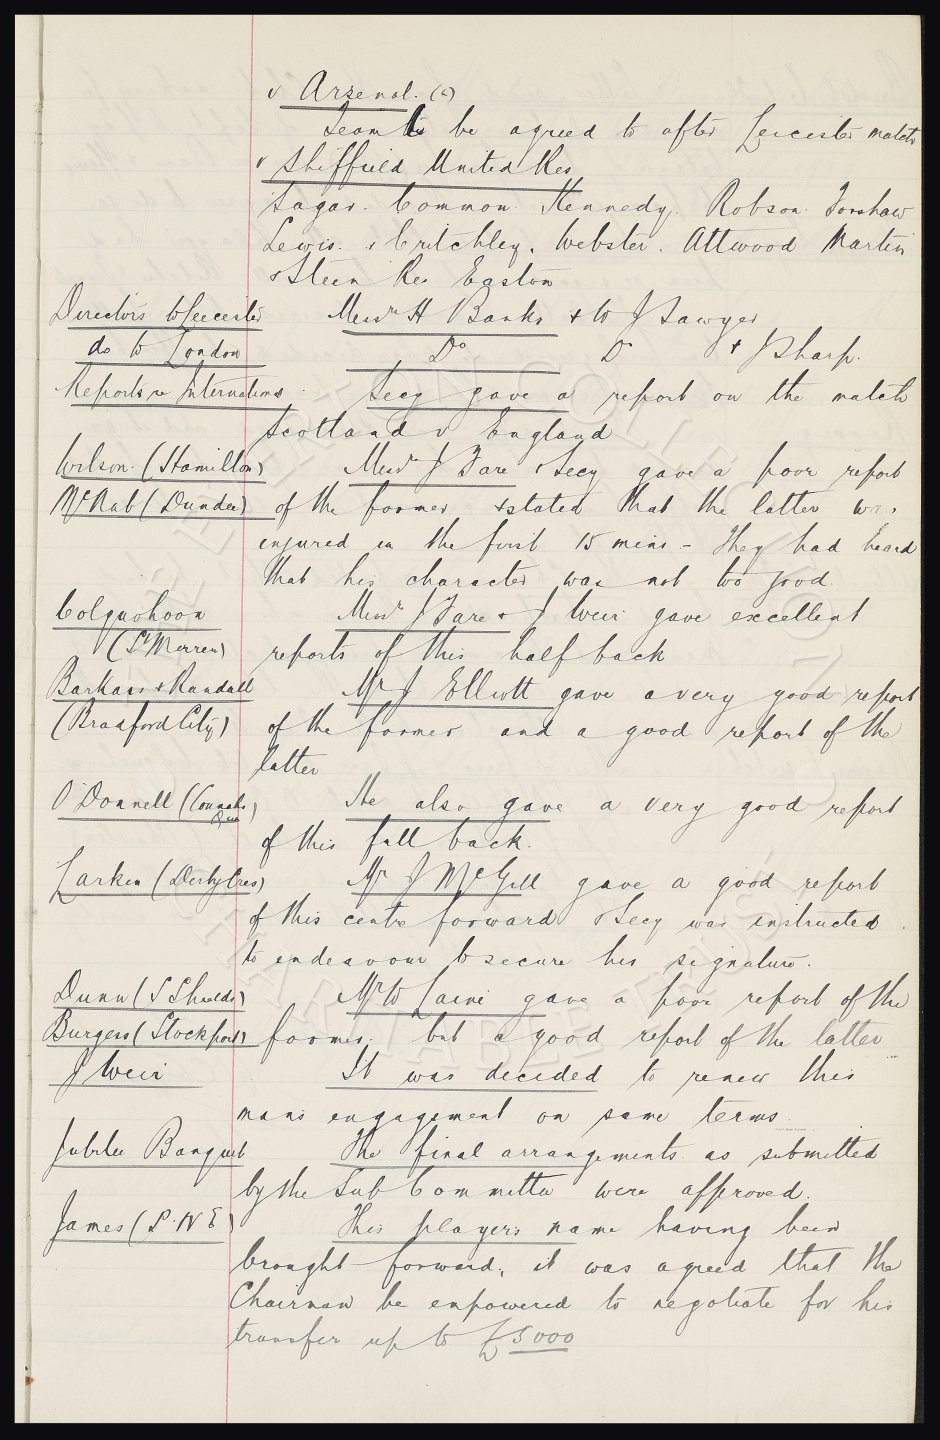 v Arsenal. (a)
Team to be agreed to after Leicester match
v Sheffield United Res
Sagar. Common. Kennedy. Robson. Forshaw
Lewis. Critchley. Webster. Attwood Martin
& Steen Res Easton
Directors to Leicester Messrs H Banks & W J Sawyer
do to London Do D & J Sharp.
Reports re Internationals Secy gave a report on the match
Scotland v England
Wilson. (Hamilton) Messrs J Fare & Secy gave a poor report
McNab (Dundee) of the former & stated that the latter was
injured in the first 15 mins - They had heard
that his character was not too good.
Colquohoon Messrs J Fare & J Weir gave excellent
(St Mirren) reports of this half back
Barkass & Randall Mr J Elliott gave a very good report
(Bradford City) of the former and a good report of the
latter
O'Donnell (Connahs Quay) He also gave a very good report
of this full back.
Larkin (Derby Cres) Mr J McGill gave a good report
of this centre forward & Secy was instructed
to endeavour to secure his signature.
Dunn (S Shields) Mr W Laine gave a poor report of the
Burgess (Stockport) former, but a good report of the latter
J Weir It was decided to renew this
mans engagement on same terms.
Jubilee Banquet The final arrangements as submitted
by the Sub Committee were approved.
James (P.N E) This players name having been
brought forward, it was agreed that the
Chairman be empowered to negotiate for his
transfer up to £5000